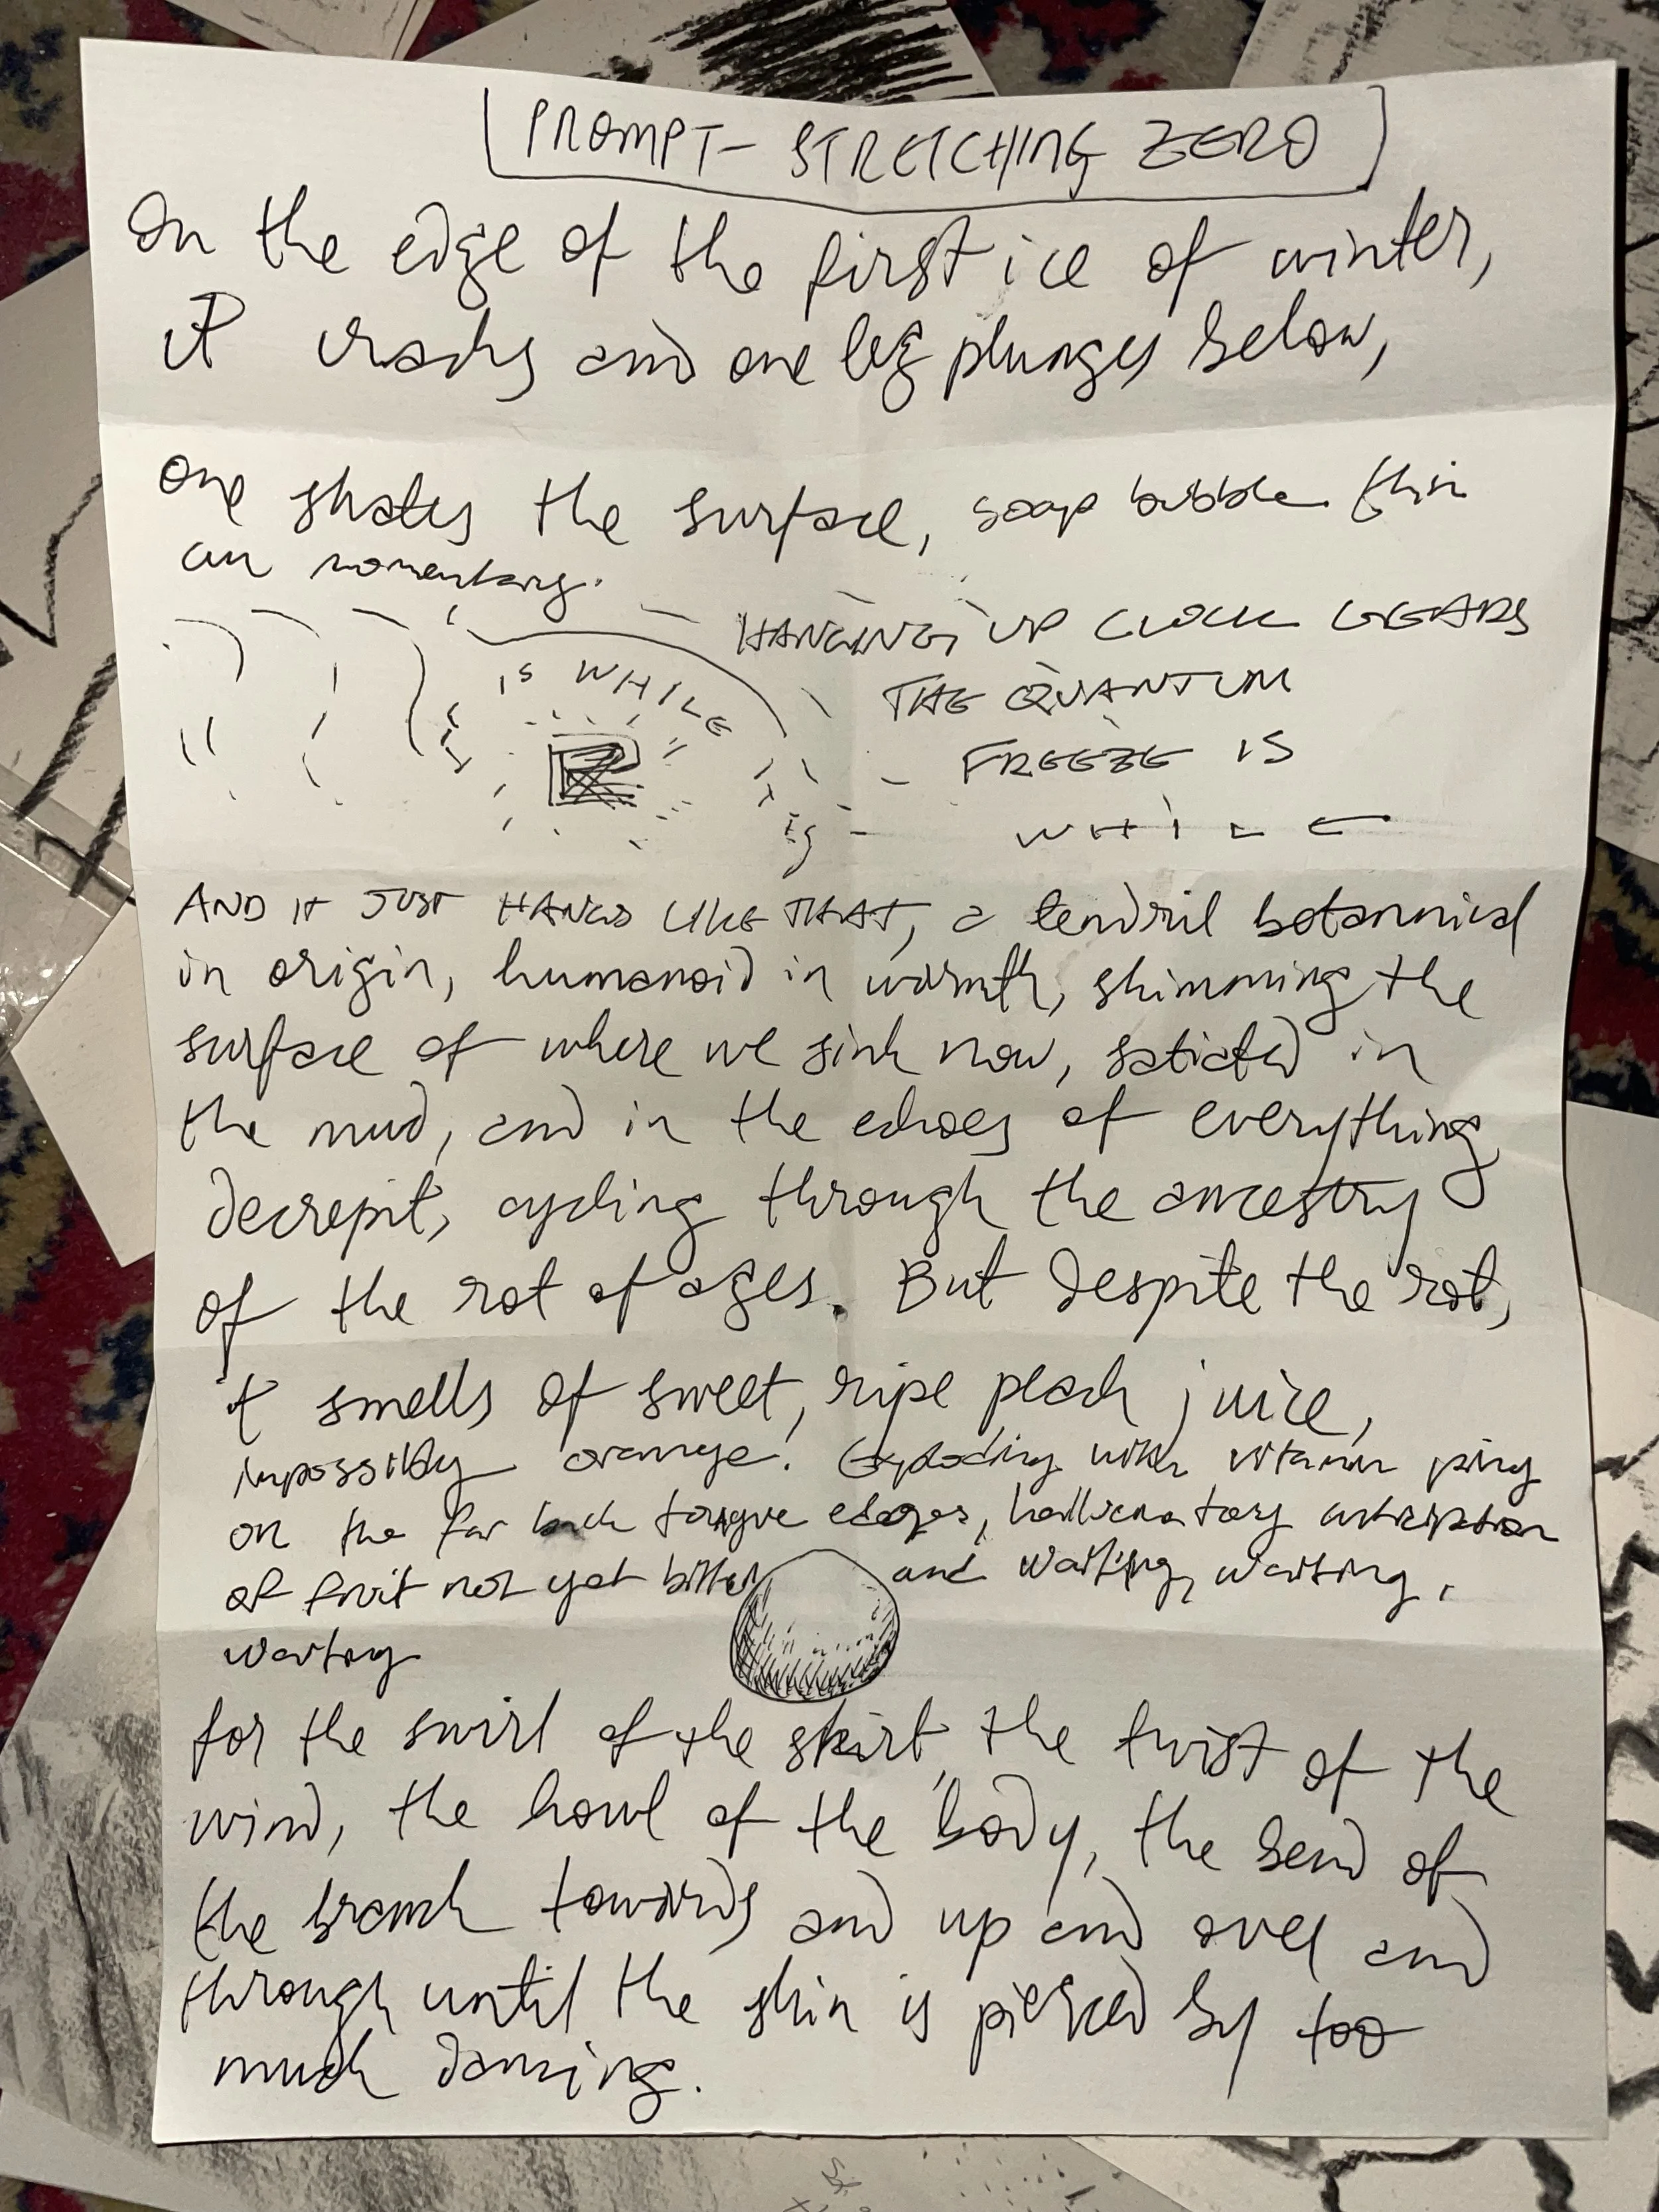 [PROMPT - STRETCHING ZERO]
On the edge of the first ice of winter,
it cracks and one leg plunges below,
one skates the surface, soap bubble thin
an momentary.
HANGING UP CLOCK GEARS
THE QUANTUM
FREEZE IS
WHILE
IS WHILE
IS
AND IT JUST HANGS LIKE THAT, a tendril botannical
in origin, humanoid in warmth, skimming the
surface of where we sink now, satiated in
the mud, and in the echoes of everything
decrepit, cycling through the ancestry
of the rot of ages. But despite the rot,
it smells of sweet, ripe peach juice,
impossibly orange. Exploding with vitamin ping
on the far back tongue edges, hallucinatory anticipation
of fruit not yet bitten and waiting, waiting,
waiting
for the swirl of the skirt, the twist of the
wind, the howl of the body, the bend of
the branch towards and up and over and
through until the skin is pierced by too
much dancing.